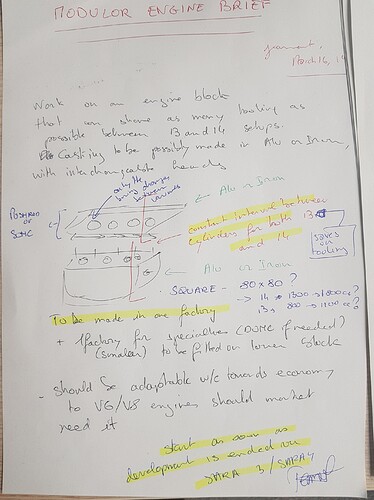 MODULOR ENGINE BRIEF
March 16, 19
Work on an engine block
that can share as many tooling as
possible between I3 and I4 setups.
Casting to be possibly made in Alu or Iron,
with interchangeable heads
only the
boring changes
between
variants
Alu or Iron
PUSHROD or
SOHC
constant interval between
cylinders for both I3
and I4
saves on
tooling
Alu or Iron
SQUARE - 80 x 80 ?
-> I4 1300 -> 1800cc ?
I3 800 -> 1100 cc ?
To be made in one factory
+ 1 factory for specialties (DOHC if needed)
(smaller) to be fitted on lower block
- should be adaptable w/c towards economy
to V6/V8 engines should market
need it
start as soon as
development is ended on
SARA 3 / SARA 4